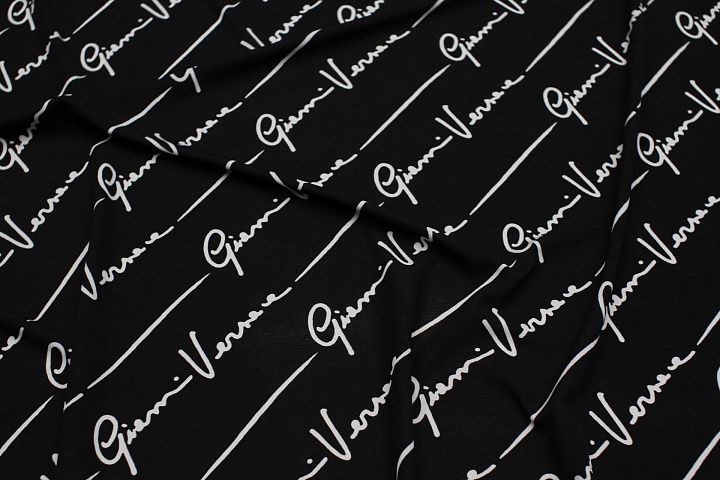 Gianni Versace
Gianni Versace
Gianni Versace
Gianni Versace
Gianni Versace
Gianni Versace
Gianni Versace
Gianni Versace
Gianni Versace
Gianni Versace
Gianni Versace
Gianni Versace